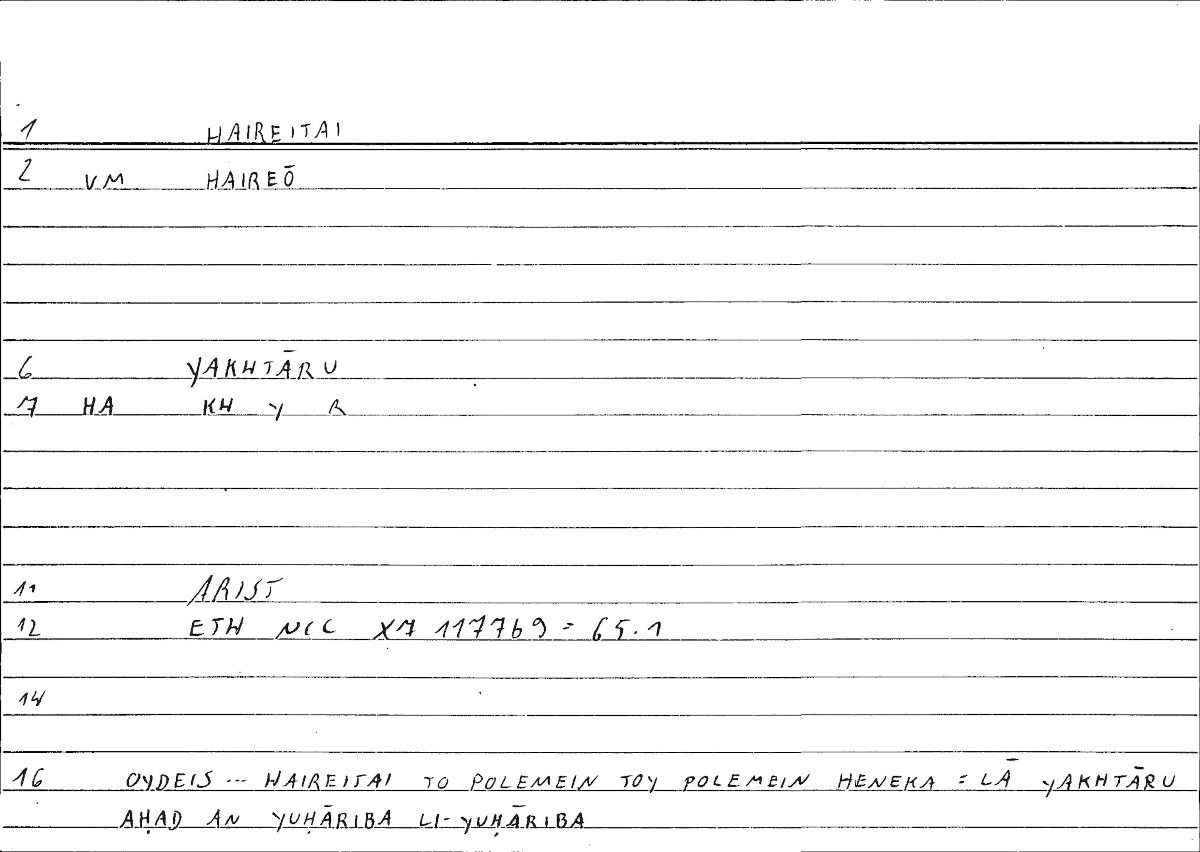 1 HAIREITAI
2 VM HAIREŌ
6 YAKHTĀRU
7 HA KH Y R
11 ARIST
12 ETH NIC X7 1177b9 = 65.1
14
16 OYDEIS ... HAIREITAI TO POLEMEIN TOY POLEMEIN HENEKA = LĀ YAKHTĀRU
AḤAD AN YUḤĀRIBA LI-YUḤĀRIBA